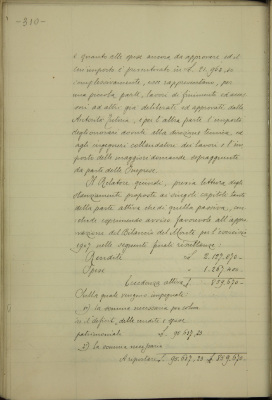 -310-
e quanto alle spese ancora da approvare ed il
cui importo è preventivato in L. 21.964, se
singolarmente, esse rappresentano, per
una piccola parte, lavori di finimento ed acces-
sori ad altri già deliberati ed approvati dalla
Autorità Tutoria, e per l'altra parte l'importo
degli onorari dovuti alla direzione tecnica, ed
agli ingegneri collaudatori dei lavori e l'im-
porto delle maggiori domande sopraggiunte
da parte delle Imprese.
Il Relatore quindi, previa lettura degli
stanziamenti proposti ai singoli capitoli tanto
della parte attiva che di quella passiva, con-
clude esprimendo avviso favorevole all'appro-
vazione del Bilancio del Monte per l'esercizio
1907 nelle seguenti finali risultanze:
Rendite L. 2.127.070 -
Spese " 1.267.400 -
Eccedenza attiva L. 859.670 -
Dalla quale vengono impegnate:
a) la somma necessaria per colma-
re il deficit, delle rendite e spese
patrimoniali L. 90.617,23
b) la somma
A riportarsi L. 90.617,23 L. 859.670 -